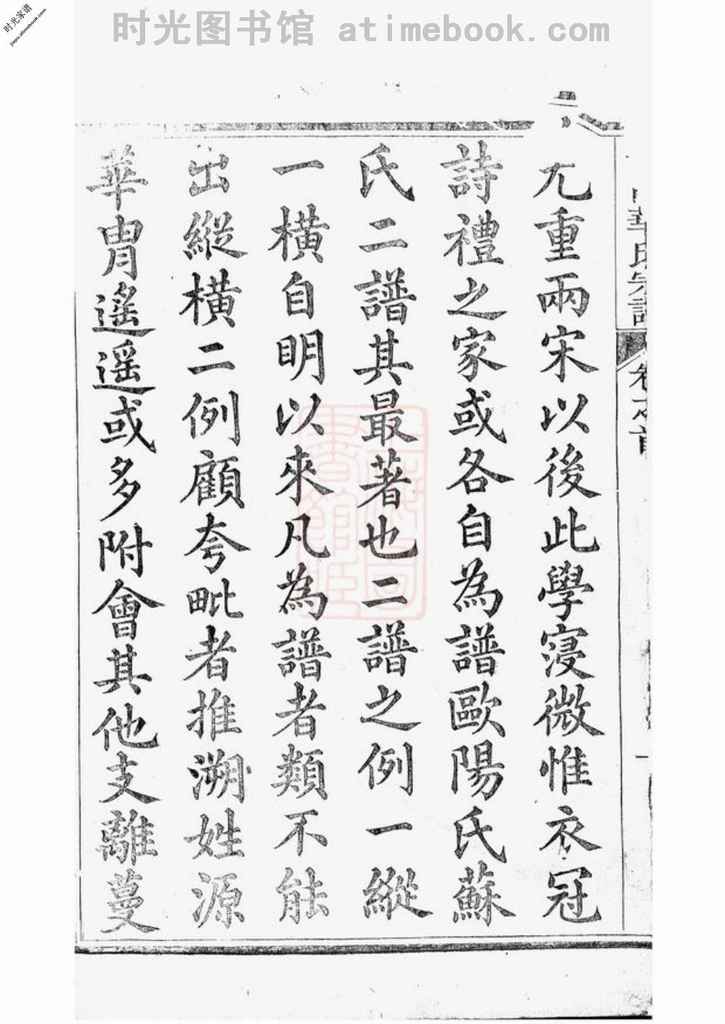 时光图书馆 atimebook.com
时光家谱
尤重兩宋以後此學寖微惟衣冠
詩禮之家或各自為譜歐陽氏蘇
氏二譜其最著也二譜之例一縱
一橫自明以來凡為譜者類不能
出縱橫二例顧夸毗者推溯姓源
華胄遙遙或多附會其他支離蔓